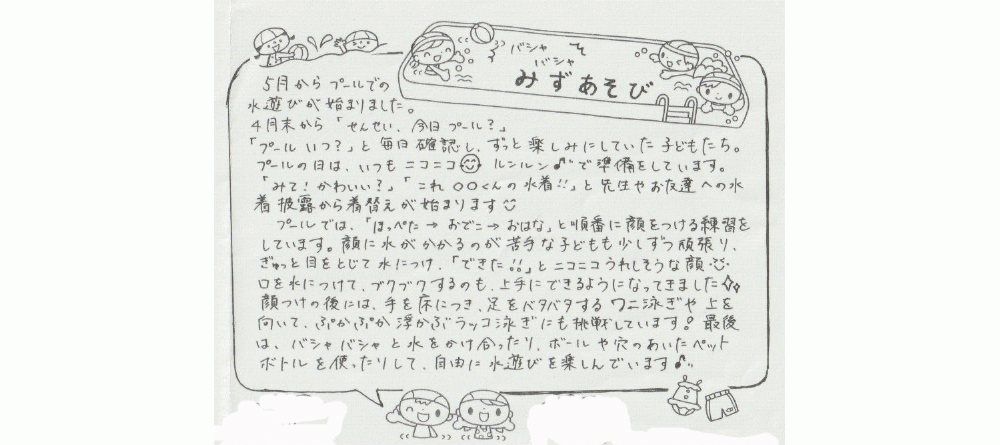 バシャ
バシャ
みずあそび
5月から プールでの
水遊びが始まりました。
4月末から「せんせい、今日プール?」
「プール いつ?」と毎日確認し、ずっと楽しみにしていた子どもたち。
プールの日は、いつもニコニコ ルンルン♪で準備をしています。
「みて!かわいい?」「これ〇〇くんの水着!!」と先生やお友達への水
着披露から着替えが始まります
プールでは、「ほっぺた→おでこ→おはな」と順番に顔をつける練習を
しています。顔に水がかかるのが苦手な子どもも少しずつ頑張り、
ぎゅっと目をとじて水につけ、「できた!!」とニコニコうれしそうな顔
口を水につけて、ブクブクするのも、上手にできるようになってきました
顔つけの後には、手を床につき、足をバタバタするワニ泳ぎや上を
向いて、ぷかぷか浮かぶラッコ泳ぎにも挑戦しています!最後
は、バシャバシャと水をかけ合ったり、ボールや穴のあいたペット
ボトルを使ったりして、自由に水遊びを楽しんでいます♪